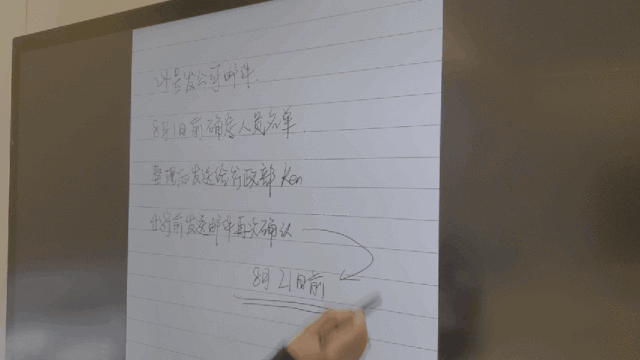 24号发公司邮件
8月1日前确定人员名单.
整理后发送给行政部 Ken
出发前发送邮件再次确认
8月21日前